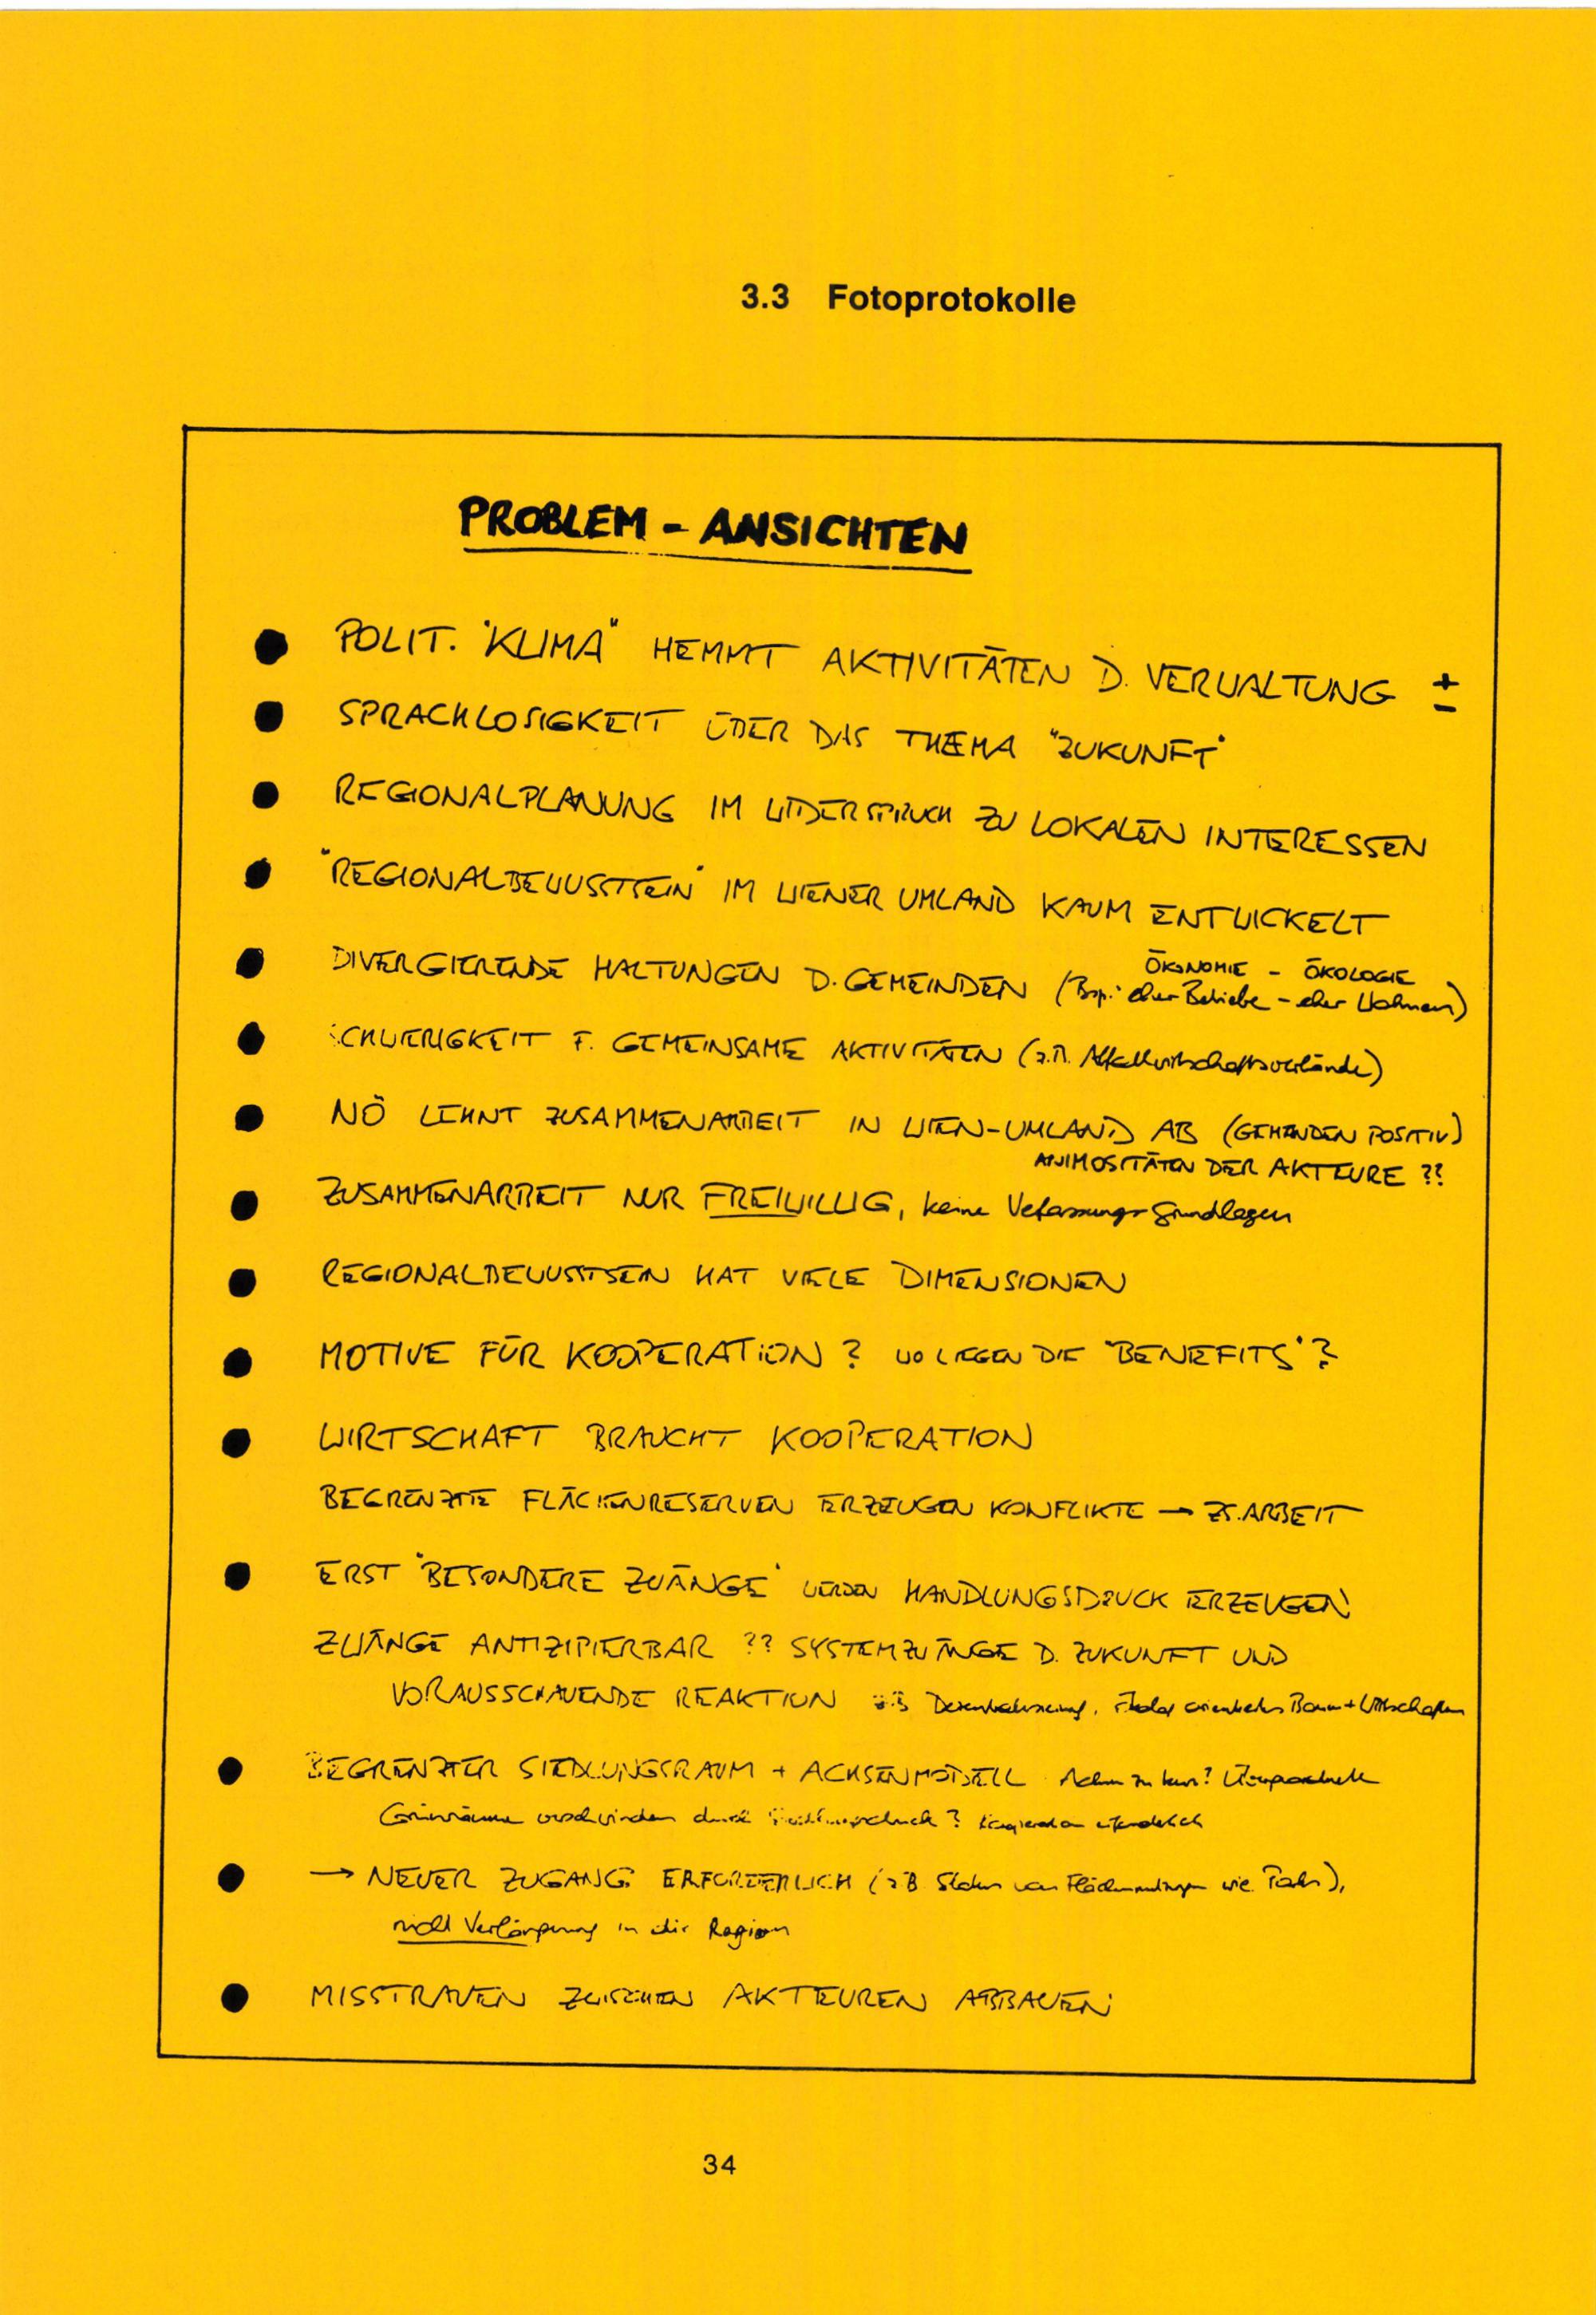 3.3 Fotoprotokolle
PROBLEM - ANSICHTEN
● POLIT. "KLIMA" HEMMT AKTIVITÄTEN D. VERWALTUNG ±
● SPRACHLOSIGKEIT ÜBER DAS THEMA "ZUKUNFT"
● REGIONALPLANUNG IM WIDERSPRUCH ZU LOKALEN INTERESSEN
● "REGIONALBEWUSSTSEIN" IM WIENER UMLAND KAUM ENTWICKELT
ÖKONOMIE - ÖKOLOGIE
● DIVERGIERENDE HALTUNGEN D. GEMEINDEN (Bsp.: eher Betriebe - eher Wohnen)
● SCHWIERIGKEIT F. GEMEINSAME AKTIVITÄTEN (z.B. Abfallwirtschaftsverbände)
● NÖ LEHNT ZUSAMMENARBEIT IN WIEN-UMLAND AB (GEMEINDEN POSITIV)
ANIMOSITÄTEN DER AKTEURE ??
● ZUSAMMENARBEIT NUR FREIWILLIG, keine Verfassungs-Grundlagen
● REGIONALBEWUSSTSEIN HAT VIELE DIMENSIONEN
● MOTIVE FÜR KOOPERATION? WO LIEGEN DIE "BENEFITS"?
● WIRTSCHAFT BRAUCHT KOOPERATION
BEGRENZTE FLÄCHENRESERVEN ERZEUGEN KONFLIKTE → ZS.ARBEIT
● ERST "BESONDERE ZWÄNGE" WERDEN HANDLUNGSDRUCK ERZEUGEN
ZWÄNGE ANTIZIPIERBAR ?? SYSTEMZWÄNGE D. ZUKUNFT UND
VORAUSSCHAUENDE REAKTION
● BEGRENZTER SIEDLUNGSRAUM + ACHSENMODELL Achsen zu kurz?
Grünräume verschwinden durch
● → NEUER ZUGANG ERFORDERLICH (z.B. Status von
nicht Verlängerung in die Region
● MISSTRAUEN ZWISCHEN AKTEUREN ABBAUEN
34